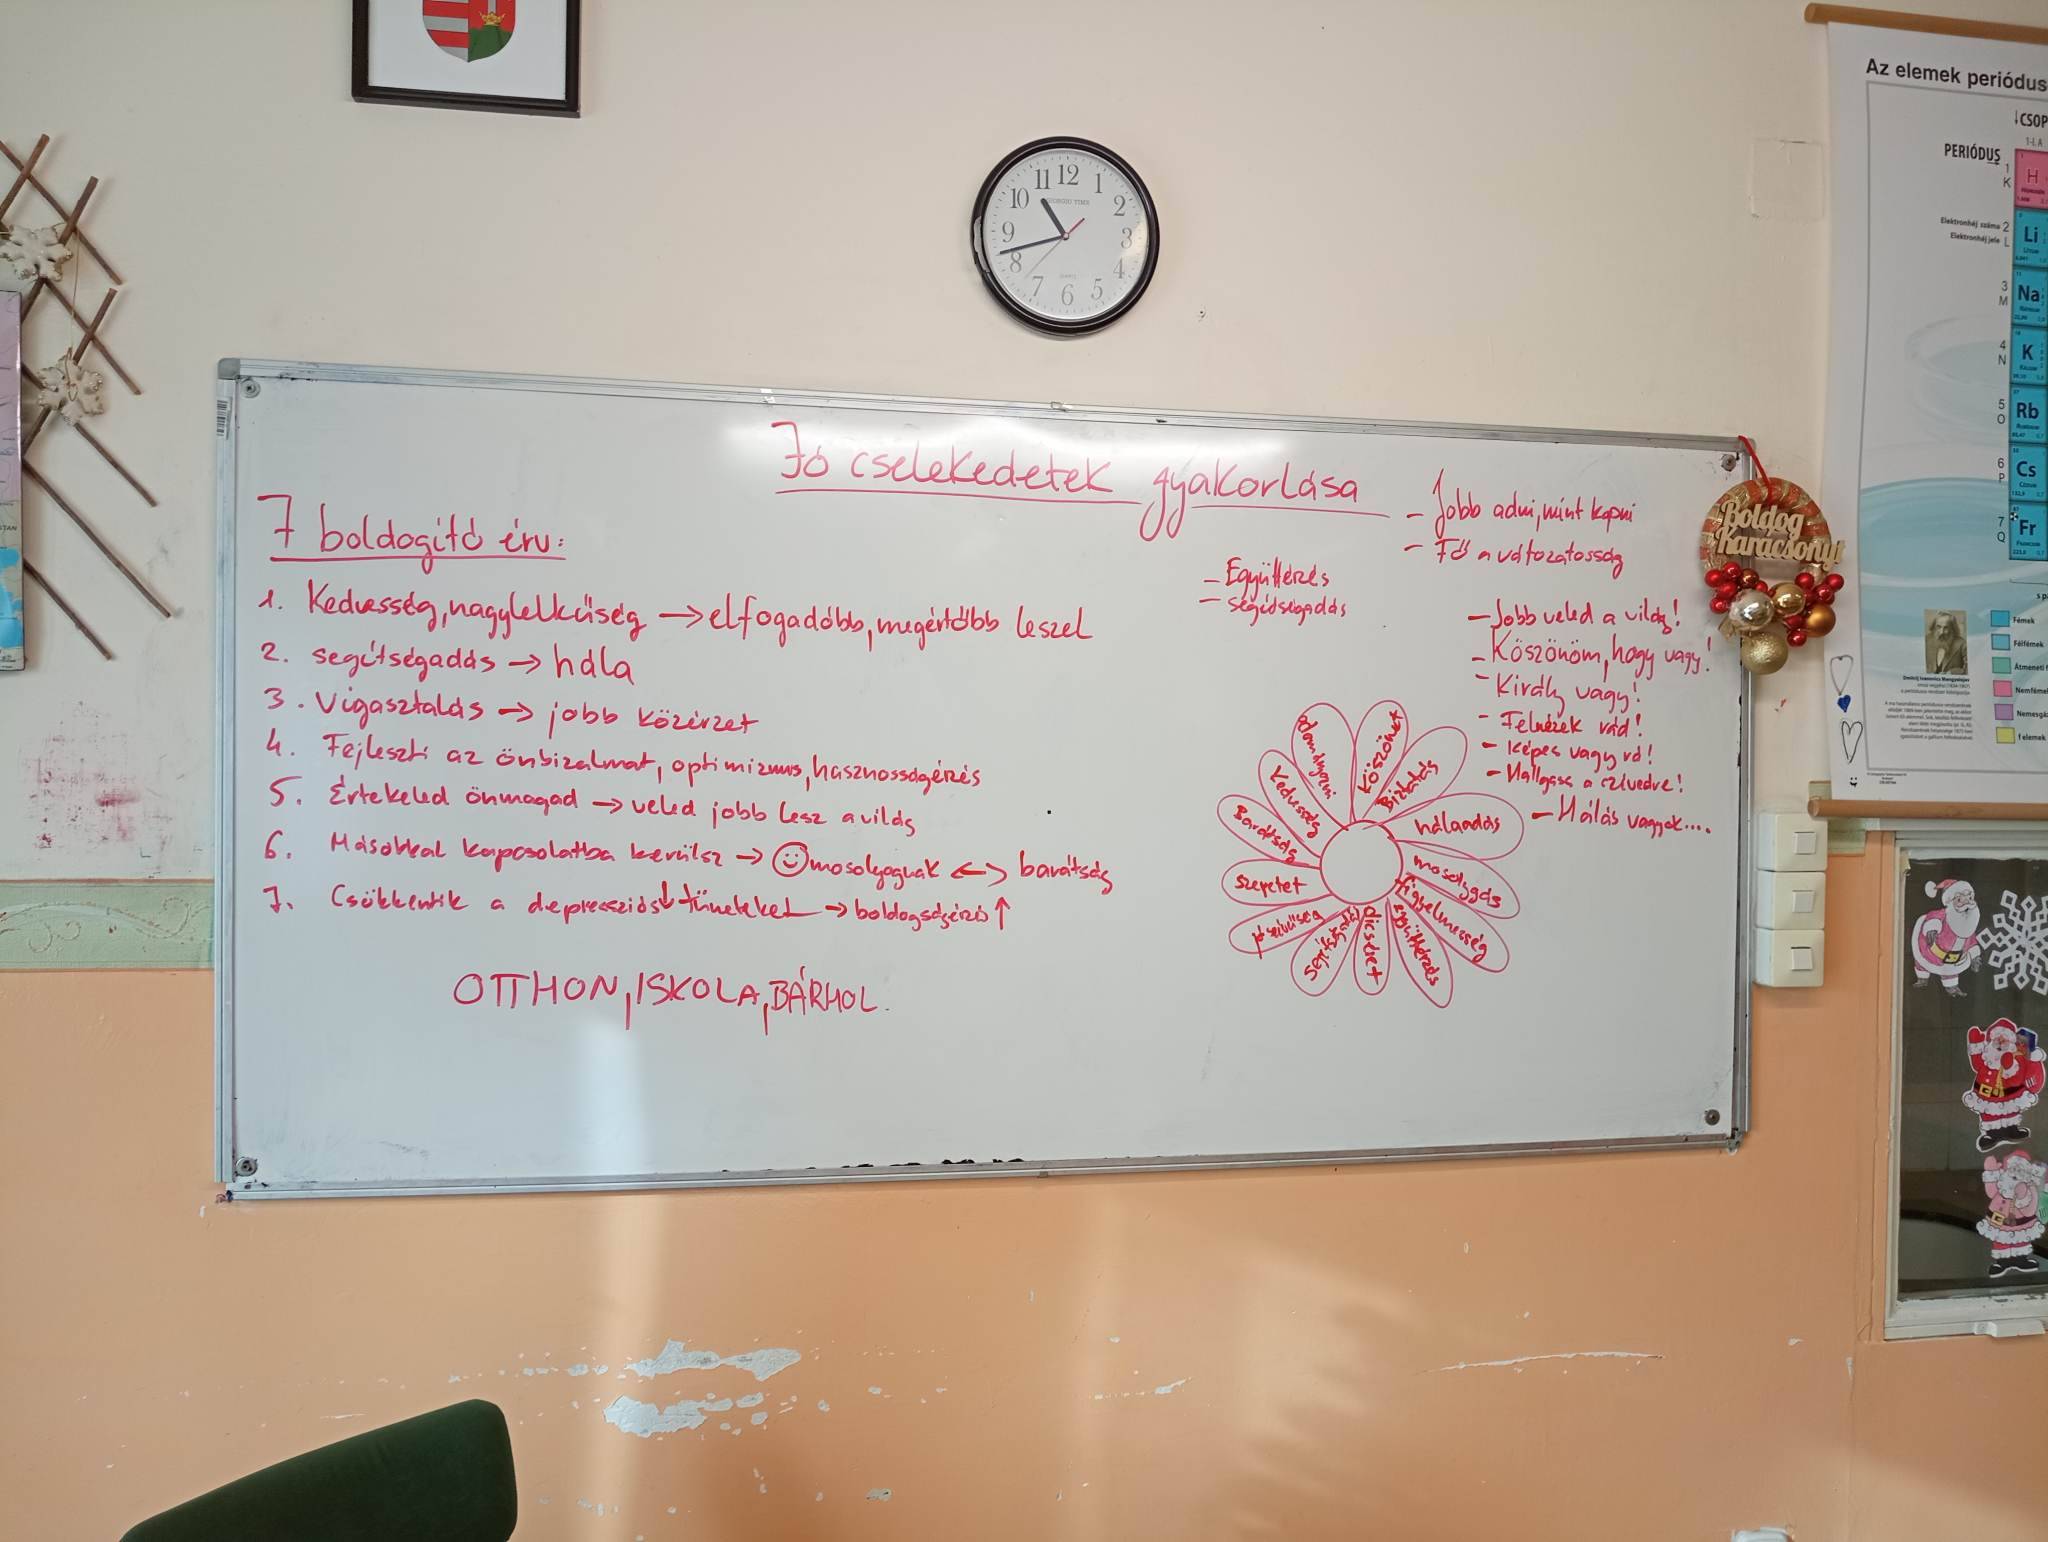 Jó cselekedetek gyakorlása
7 boldogító érv:
1. Kedvesség, nagylelkűség → elfogadóbb, megértőbb leszel
2. segítségadás → hála
3. Vigasztalás → jobb közérzet
4. Fejleszti az önbizalmat, optimizmus, hasznosságérzés
5. Értékeled önmagad → veled jobb lesz a világ
6. Másokkal kapcsolatba kerülsz → mosolyognak ↔ barátság
7. Csökkentik a depressziós ↓ tüneteket → boldogságérzés ↑
OTTHON, ISKOLA, BÁRHOL.
- Együttérzés
- segítségadás
- Jobb adni, mint kapni
- Fő a változatosság
- Jobb veled a világ!
- Köszönöm, hogy vagy!
- Király vagy!
- Felnézek rád!
- Képes vagy rá!
- Hallgass a szívedre!
- Hálás vagyok....
Köszönet
Biztatás
hálaadás
mosolygás
figyelmesség
együttérzés
dícséret
segítségadás
jószívűség
szeretet
Barátság
Kedvesség
Adományozni
12
1
2
3
4
5
6
7
8
9
10
11
GIORGIO TIME
QUARTZ
Boldog
Karácsonyt
Az elemek periódus
CSOP
PERIÓDUS
1
K
Elektronhéj száma 2
Elektronhéj jele L
3
M
4
N
5
O
6
P
7
Q
H
Li
Na
K
Rb
Cs
Fr
Fémek
Félfémek
Átmeneti f
Nemféme
Nemesgá
f elemek